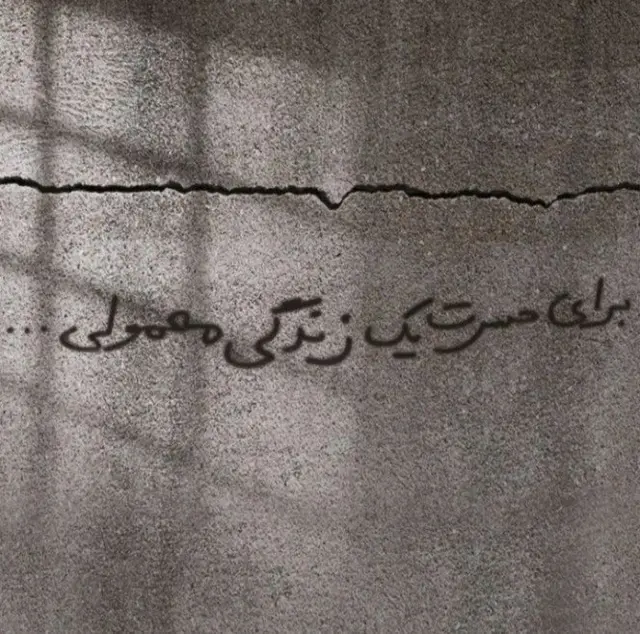 برای حسرت یک زندگی معمولی ...